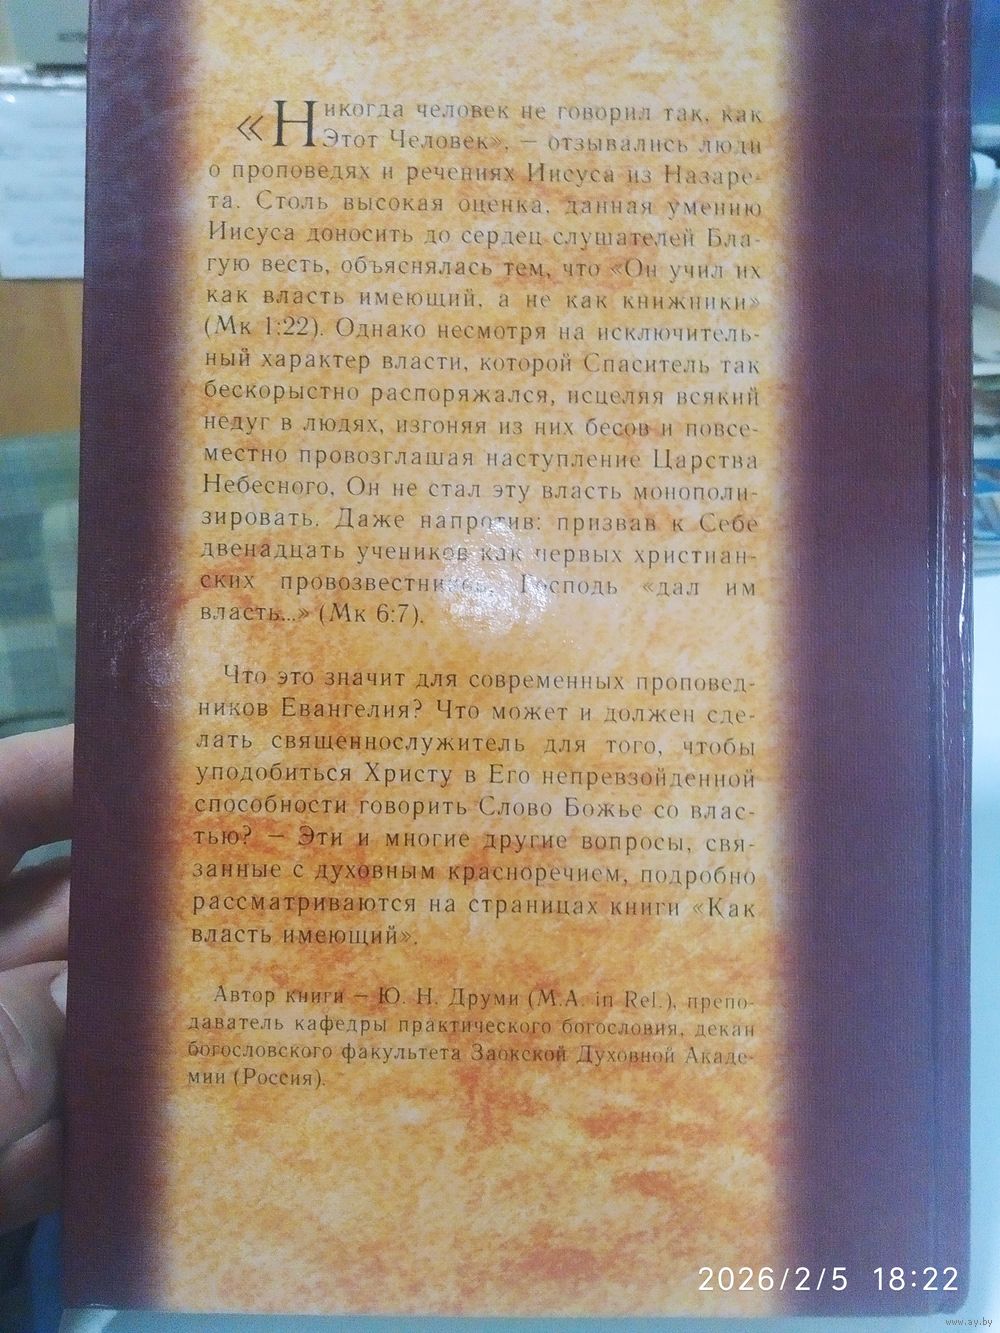 «Никогда человек не говорил так, как
Этот Человек», — отзывались люди
о проповедях и речениях Иисуса из Назаре-
та. Столь высокая оценка, данная умению
Иисуса доносить до сердец слушателей Бла-
гую весть, объяснялась тем, что «Он учил их
как власть имеющий, а не как книжники»
(Мк 1:22). Однако несмотря на исключитель-
ный характер власти, которой Спаситель так
бескорыстно распоряжался, исцеляя всякий
недуг в людях, изгоняя из них бесов и повсе-
местно провозглашая наступление Царства
Небесного, Он не стал эту власть монополи-
зировать. Даже напротив: призвав к Себе
двенадцать учеников как первых христиан-
ских провозвестников, Господь «дал им
власть...» (Мк 6:7).
Что это значит для современных проповед-
ников Евангелия? Что может и должен сде-
лать священнослужитель для того, чтобы
уподобиться Христу в Его непревзойденной
способности говорить Слово Божье со влас-
тью? — Эти и многие другие вопросы, свя-
занные с духовным красноречием, подробно
рассматриваются на страницах книги «Как
власть имеющий».
Автор книги — Ю. Н. Друми (M.A. in Rel.), препо-
даватель кафедры практического богословия, декан
богословского факультета Заокской Духовной Акаде-
мии (Россия).
2026/2/5 18:22
www.ay.by